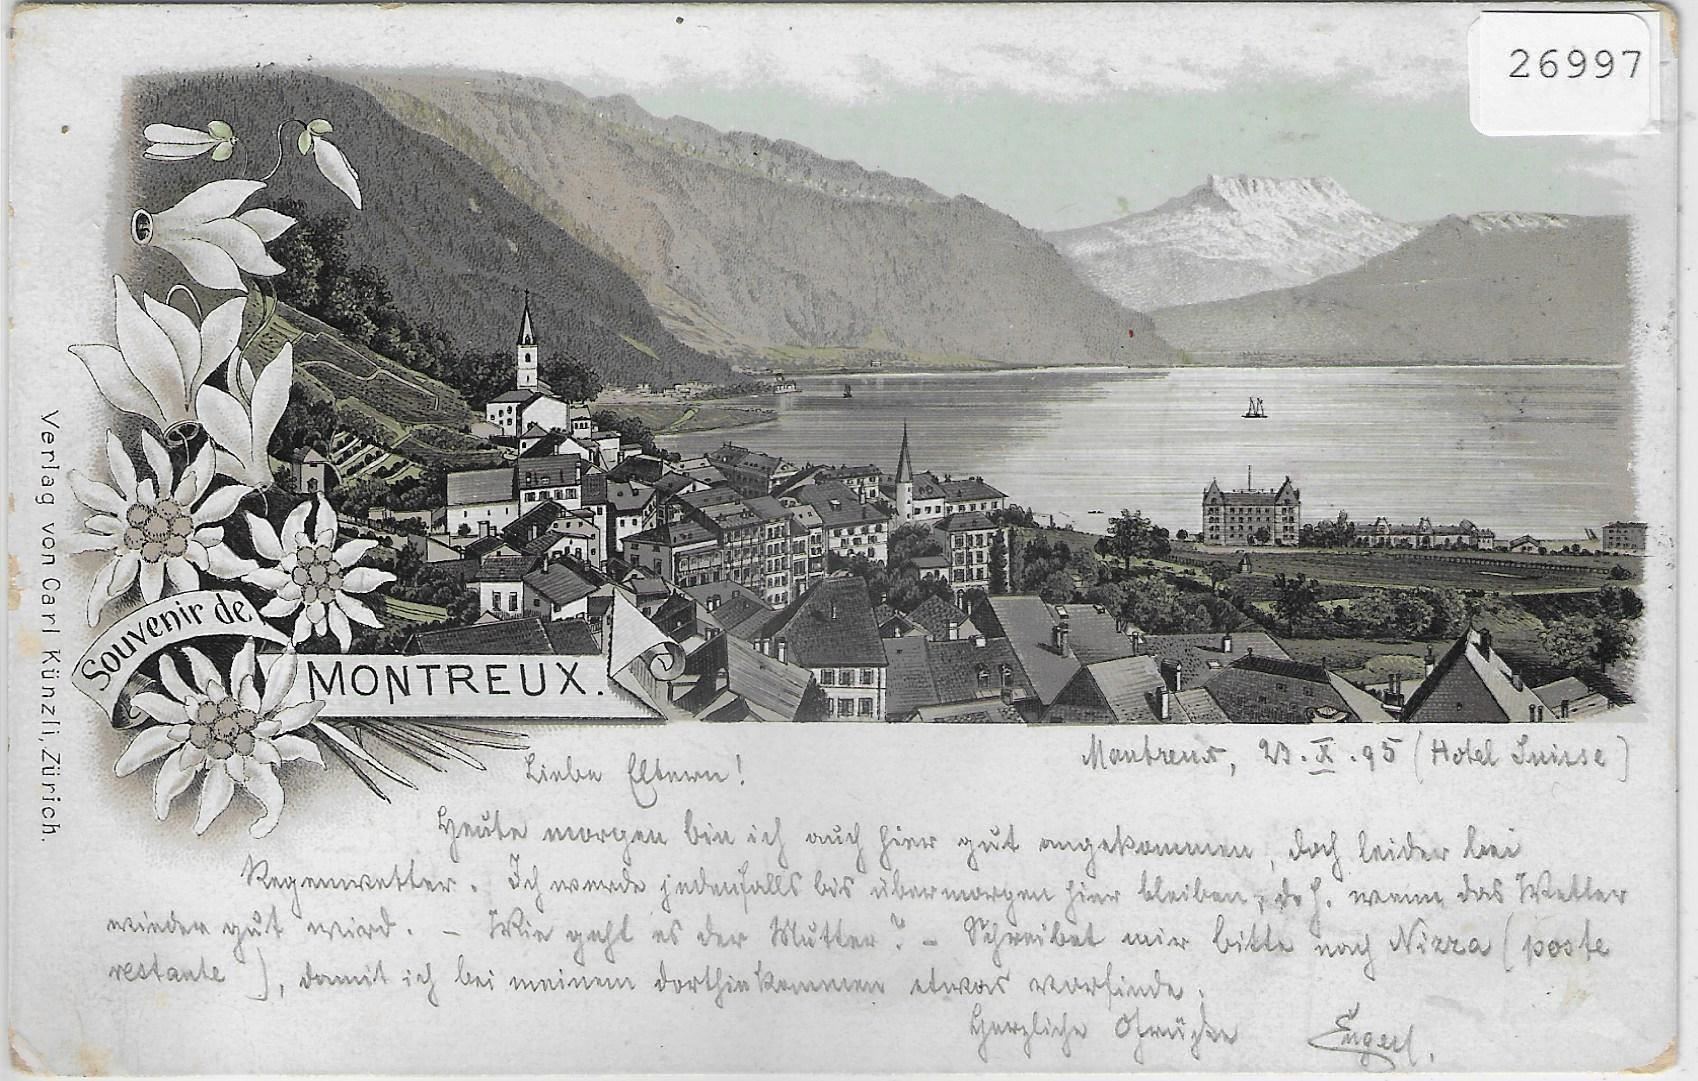 26997
Souvenir de
MONTREUX.
Verlag von Carl Künzli, Zürich.
Montreux, 23. X. 95 (Hotel Suisse)
Liebe Eltern!
Heute morgen bin ich auch hier gut angekommen, doch leider bei
Regenwetter. Ich werde jedenfalls bis übermorgen hier bleiben, d. h. wenn das Wetter
wieder gut wird. – Wie geht es der Mutter? – Schreibet mir bitte nach Nizza (poste
restante), damit ich bei meinem Dorthinkommen etwas vorfinde.
Herzliche Grüße